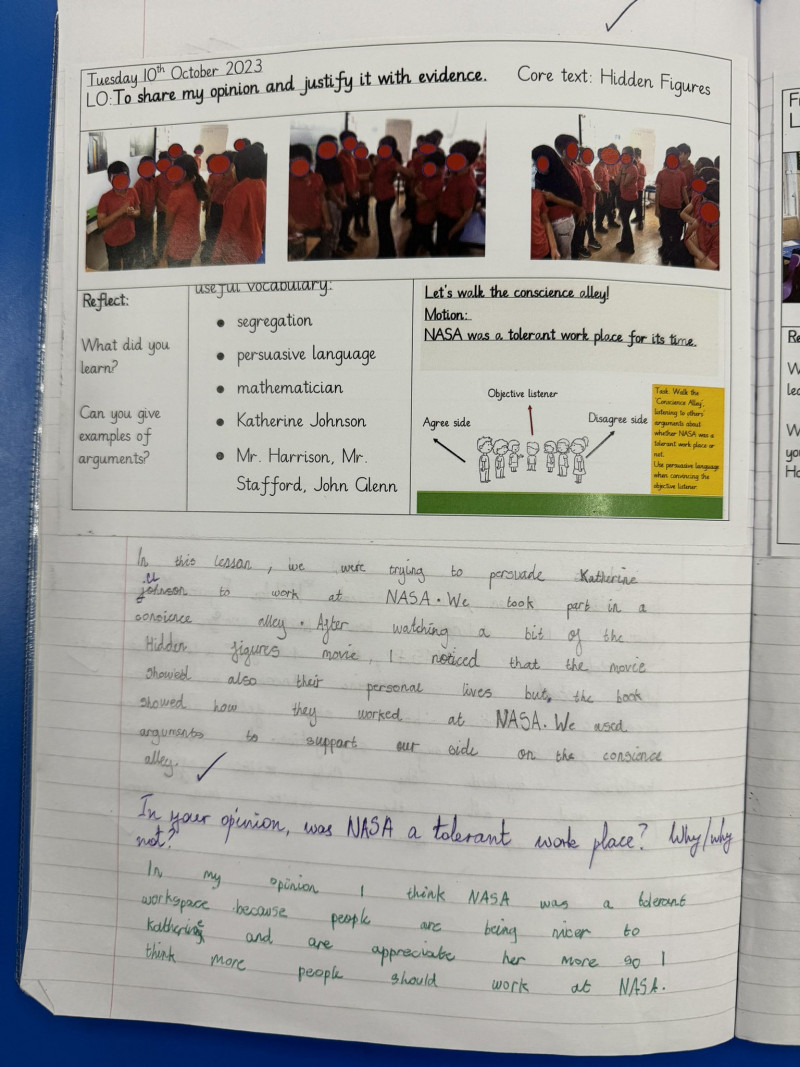 Tuesday 10th October 2023
LO: To share my opinion and justify it with evidence.
Core text: Hidden Figures
Reflect:
What did you
learn?
Can you give
examples of
arguments?
useful vocabulary:
• segregation
• persuasive language
• mathematician
• Katherine Johnson
• Mr. Harrison, Mr.
Stafford, John Glenn
Let's walk the conscience alley!
Motion:
NASA was a tolerant work place for its time.
Objective listener
Agree side
Disagree side
Task: Walk the
'Conscience Alley',
listening to others'
arguments about
whether NASA was a
tolerant work place or
not.
Use persuasive language
when convincing the
objective listener.
In this lesson, we were trying to persuade Katherine
johnson to work at NASA. We took part in a
consience alley. After watching a bit of the
Hidden figures movie, I noticed that the movie
showed also their personal lives but, the book
showed how they worked at NASA. We used
arguments to support our side on the consience
alley.
In your opinion, was NASA a tolerant work place? Why/why
not?
In my opinion I think NASA was a tolerant
workspace because people are being nicer to
Katherine and are appreciate her more so I
think more people should work at NASA.